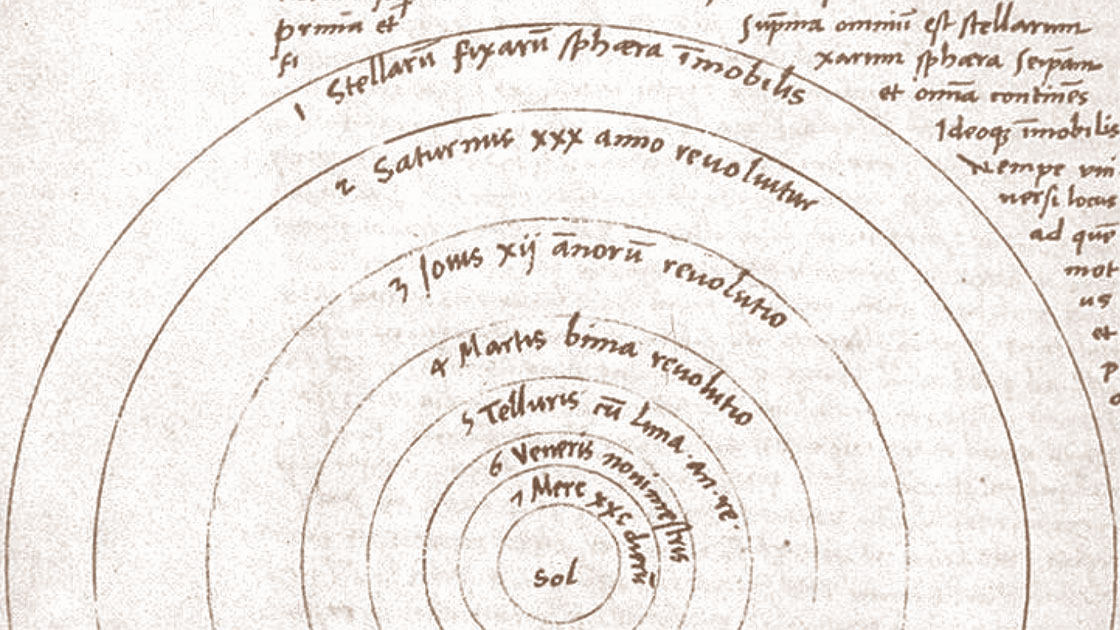 primā et
fi
Supma omniū est stellarum
xarum sphæra seipām
et omīa continēs
Ideoqꝫ īmobilis
Nempe vni
uersi locus
ad quē
mot
us
et
p
1 Stellarū fixarū sphæra īmobilis
2 Saturnus xxx anno reuoluitur
3 Iouis xij ānorū reuolutio
4 Martis bima reuolutio
5 Telluris cū luna · an · re ·
6 Veneris nonimestris
7 Merc xxc dierū
Sol